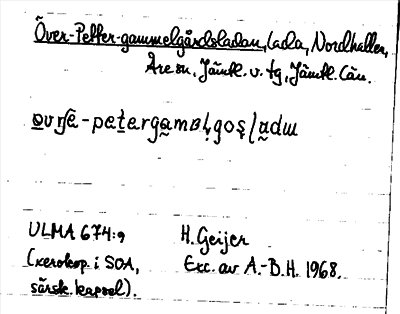 Över-Petter-gammelgårdsladan, lada, Nordhallen,
Åre sn, Jämtl. v. tg, Jämtl. län.
ULMA 674:9 H. Geijer
(xerokop. i SOA, Exc. av A.-B. H. 1968.
särsk. kapsel).